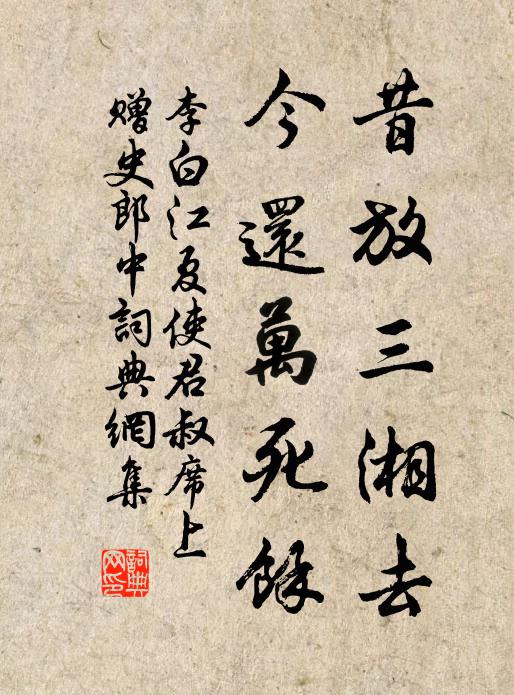 昔放三湘去
今還萬死餘
李白江夏使君叔席上
贈史郎中詞典網集
詞典
网印